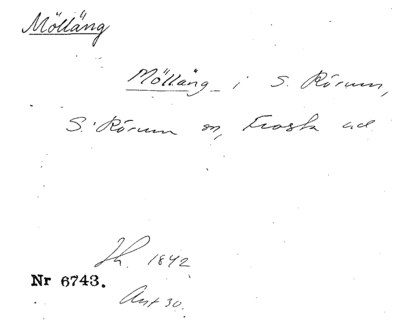 Mölläng
Mölläng i S. Rörum,
S. Rörum sn, Frosta hd
Jh. 1842
Nr 6743.
Akt 30.